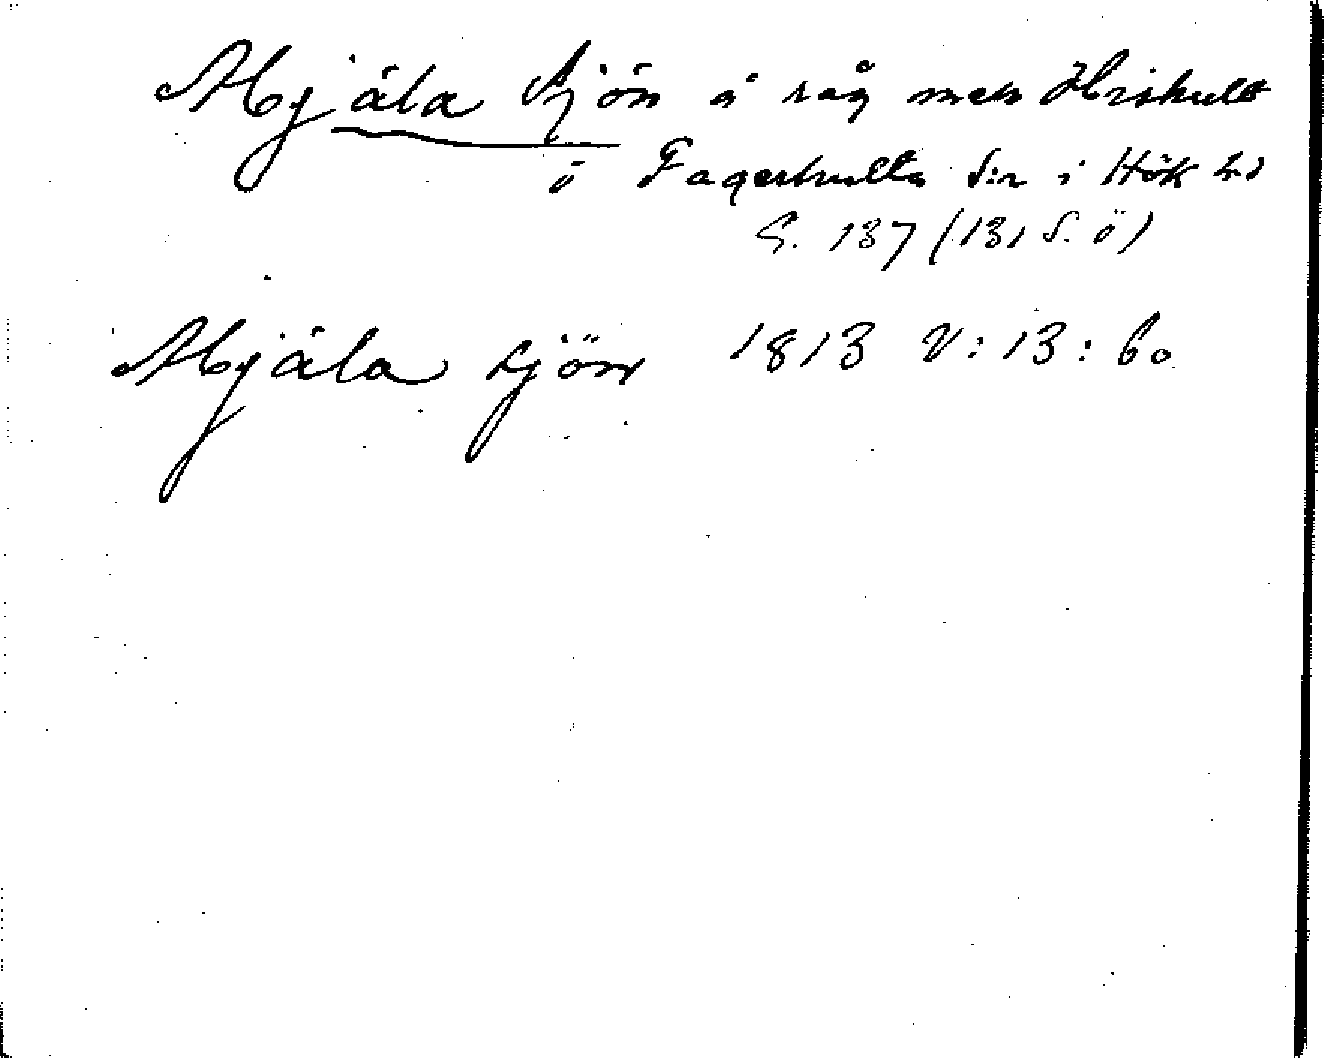 Mjäla Sjön i råg med Hishult
i Fagerhults S:n i Hök hd
G. 137 (131 S. ö)
Mjäla sjön 1813 V: 13: 60